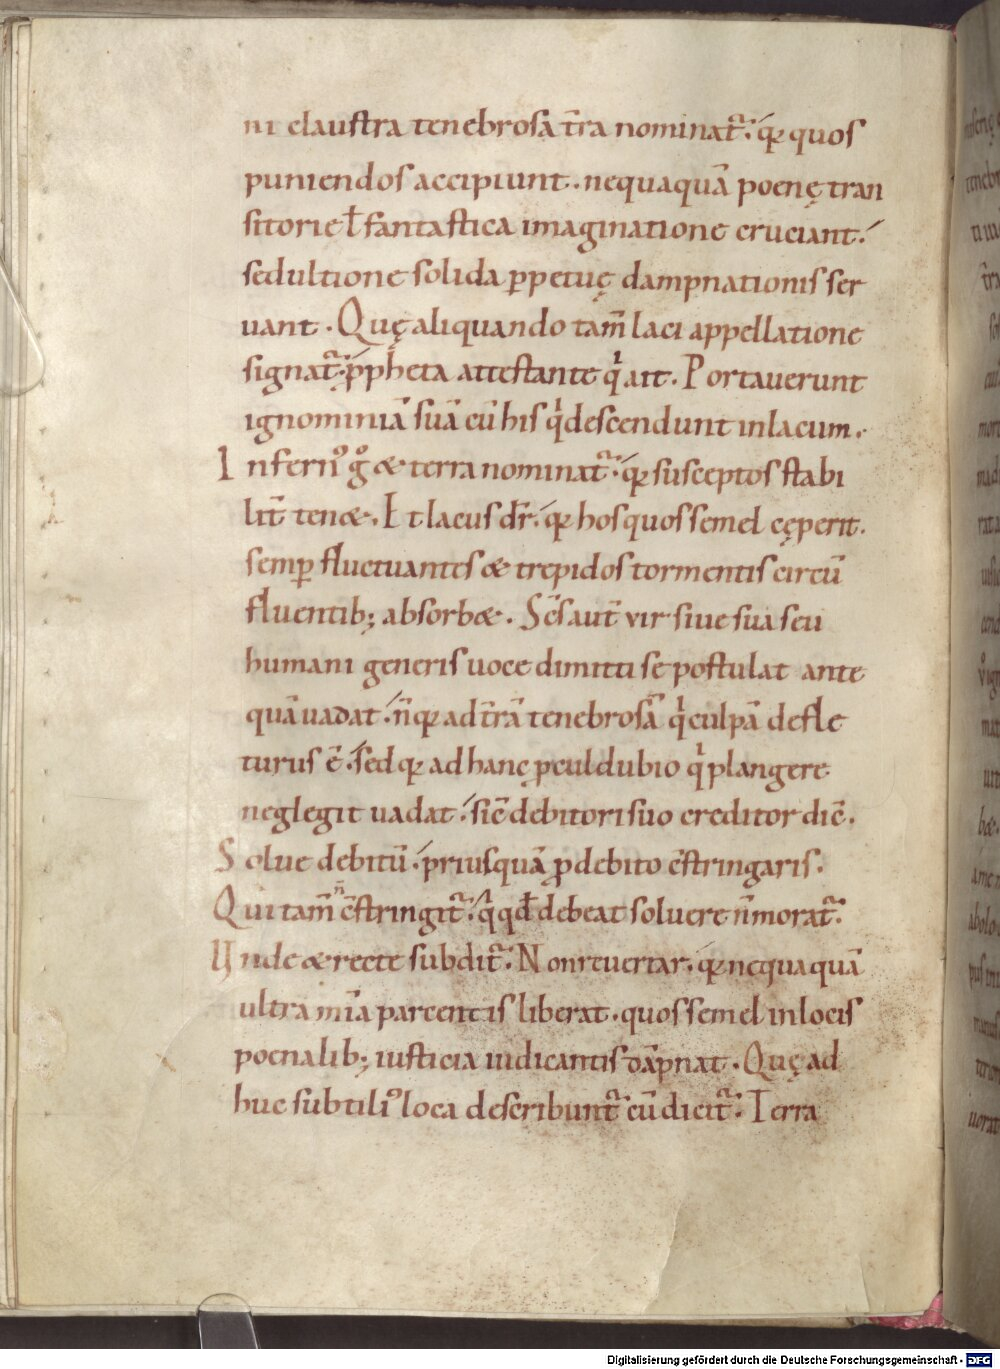 ni claustra tenebrosa t̄ra nominat᷑. qꝛ quos
puniendos accipiunt. nequaquā poenę tran
sitorie ł fantastica imaginatione cruciant.
sed ultione solida ꝑpetuę dampnationis ser
uant. Quę aliquando tam̄ laci appellatione
signat᷑. ꝓpheta attestante qͥ ait. Portauerunt
ignominiā suā cū his qͥ descendunt in lacum.
Infernꝰ gͦ & terra nominat᷑. qꝛ susceptos stabi
lit̄ ten&. Et lacus dr̄. qꝛ hos quos semel cęperit.
semꝑ fluctuantes & trepidos tormentis circū
fluentib; absorb&. Sc̄s aut̄ vir siue sua seu
humani generis uoce dimitti se postulat ante
quā uadat. n̄ qꝛ ad t̄rā tenebrosā qͥ culpā defle
turus ē. sed qꝛ ad hanc ꝓculdubio qͥ plangere
neglegit uadat. sic̄ debitori suo creditor dic̄.
Solue debitū. priusquā ꝓ debito c̄stringaris.
Qui tam̄ n̄ c̄stringit᷑. qͥ qđ debeat soluere n̄ morat᷑.
Unde & recte subdit᷑. Non reuertar. qꝛ nequaquā
ultra mīa parcentis liberat. quos semel in locis
poenalib; iusticia iudicantis dāpnat. Quę ad
huc subtiliꝰ loca describunt᷑ cū dicit᷑. Terra
Digitalisierung gefördert durch die Deutsche Forschungsgemeinschaft - DFG